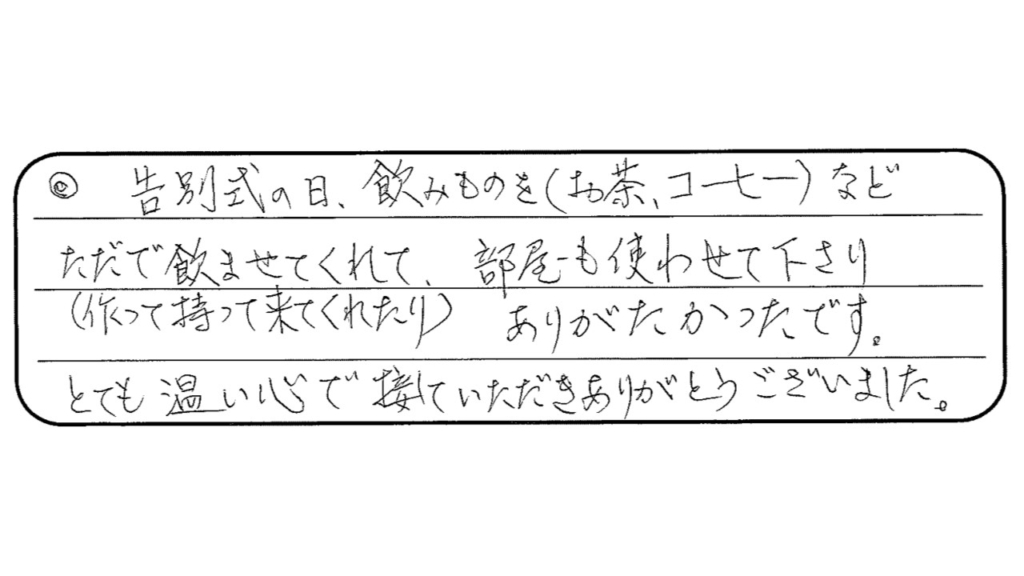 ◎ 告別式の日、飲みものを(お茶、コーヒー)など
ただで飲ませてくれて、部屋も使わせて下さり
(作って持って来てくれたり) ありがたかったです。
とても温い心で接していただきありがとうございました。